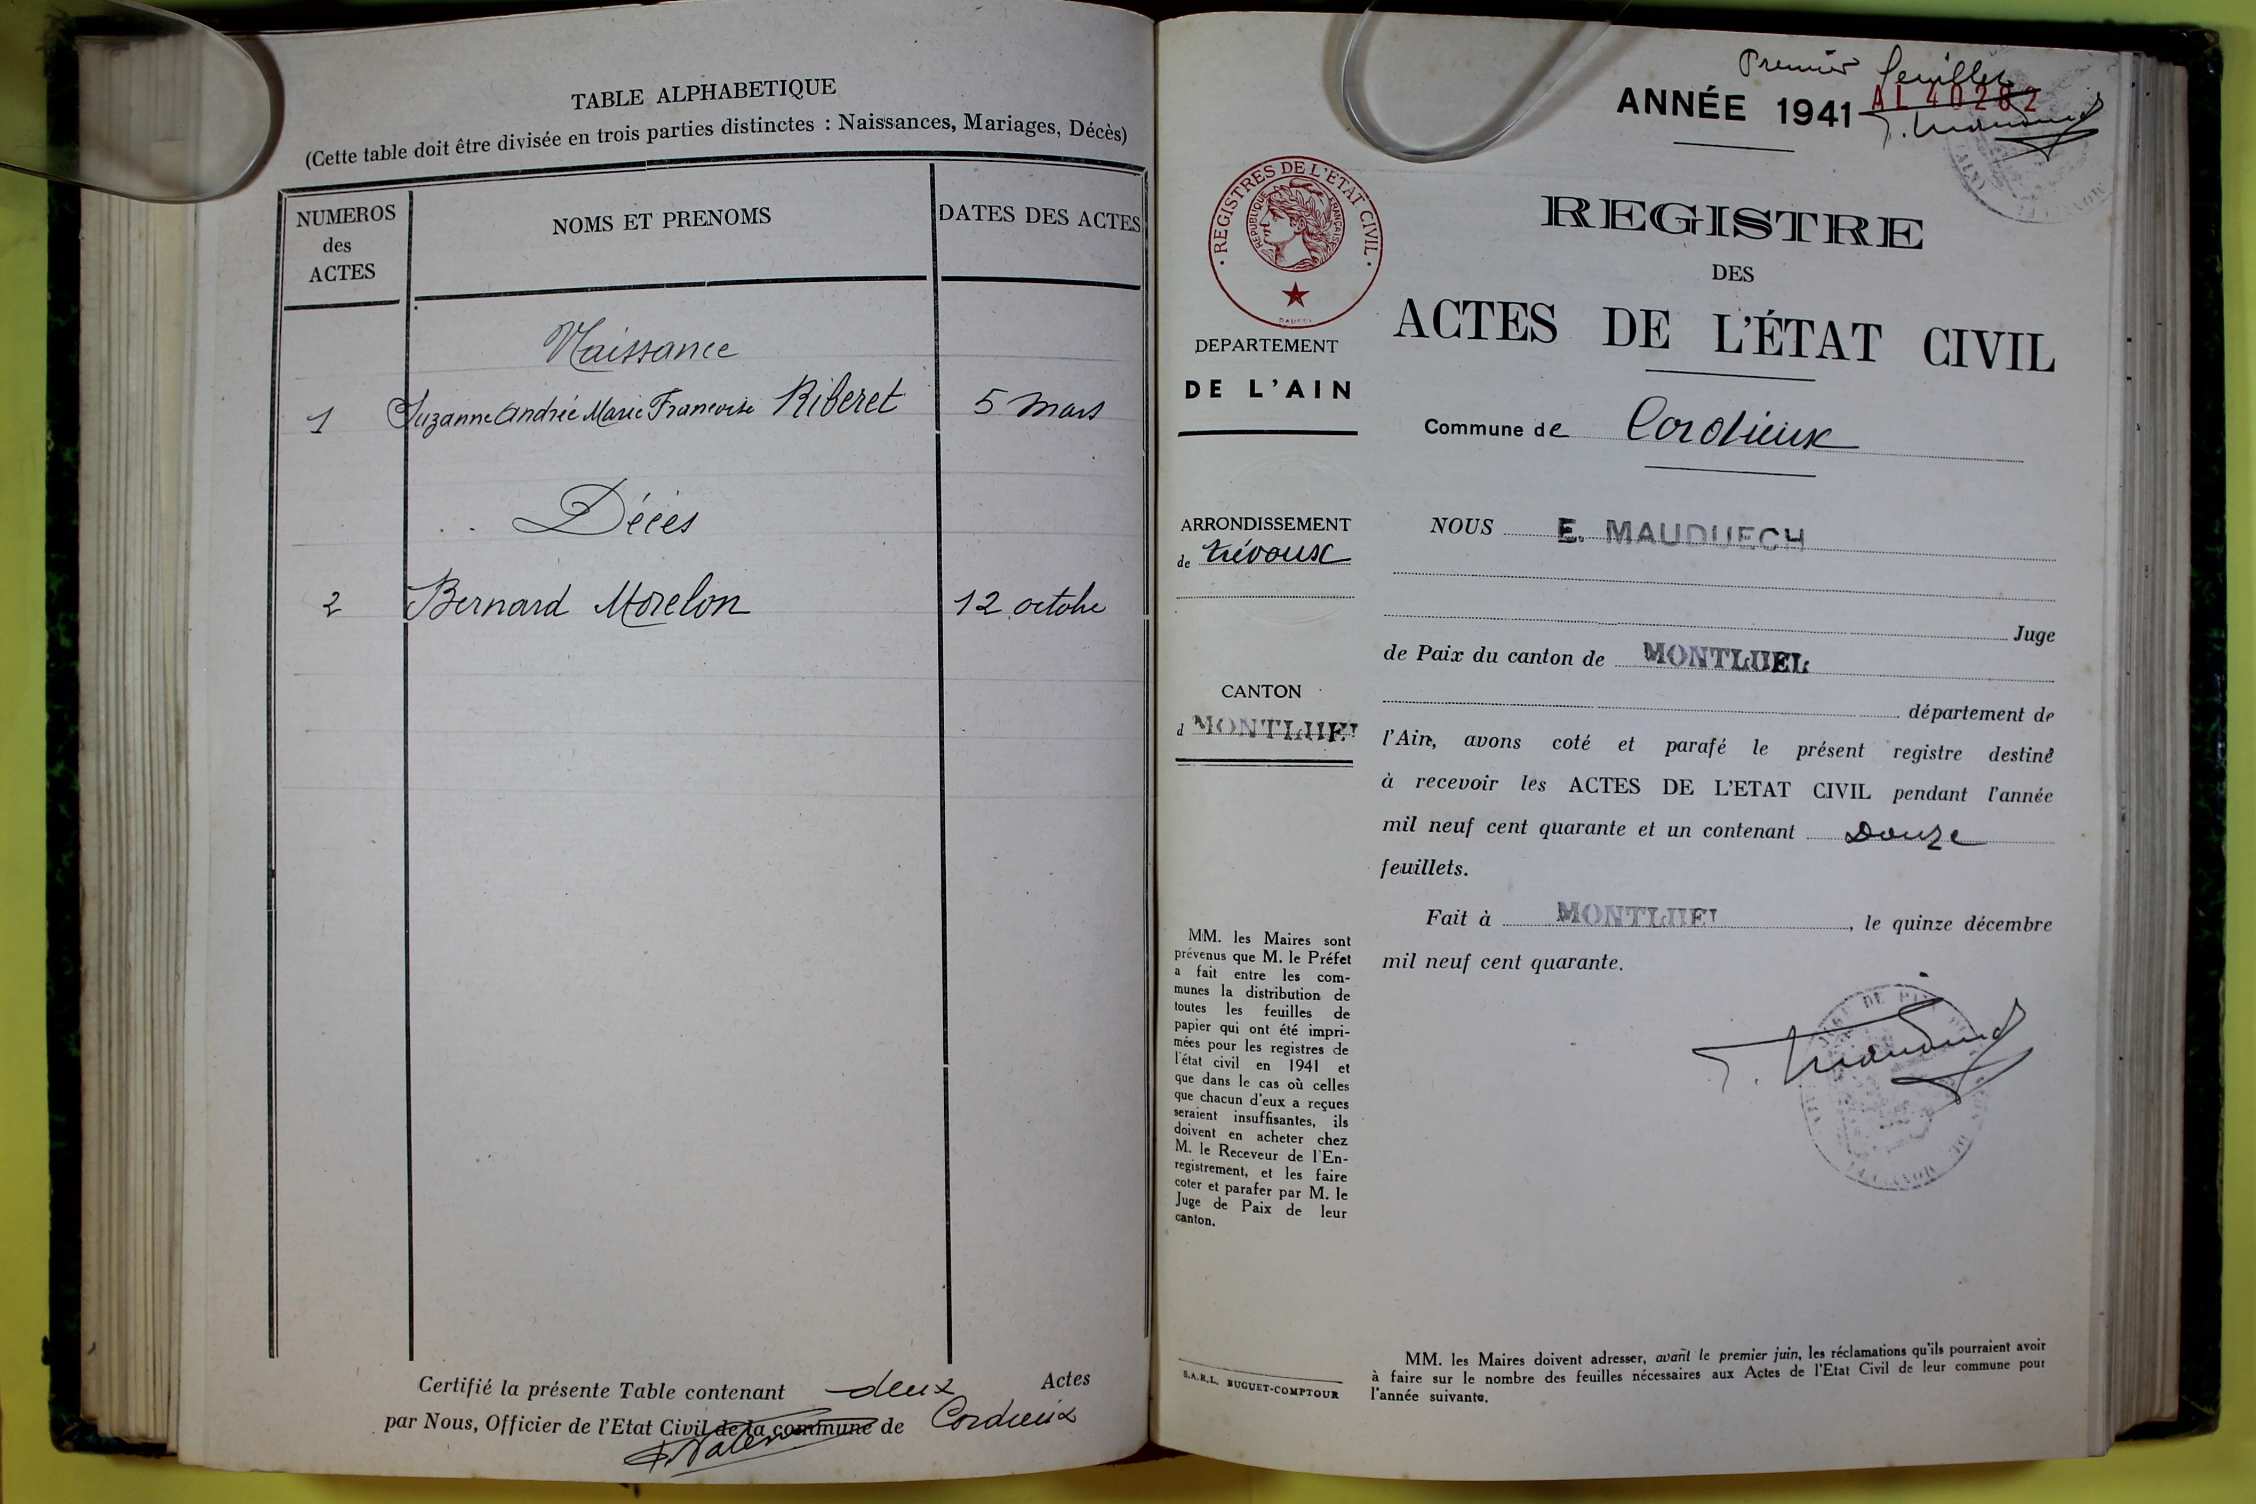 TABLE ALPHABETIQUE
(Cette table doit être divisée en trois parties distinctes : Naissances, Mariages, Décès)
NUMEROS
des
ACTES
NOMS ET PRENOMS
DATES DES ACTES
Naissance
1 Suzanne Andrée Marie Françoise Riberet 5 mars
Décès
2 Bernard Morelon 12 octobre
Certifié la présente Table contenant deux Actes
par Nous, Officier de l'Etat Civil de la commune de Cordieux
Premier feuillet
ANNÉE 1941 AL 40282
· REGISTRES DE L'ETAT CIVIL ·
REPUBLIQUE FRANÇAISE
REGISTRE
DES
ACTES DE L'ÉTAT CIVIL
DEPARTEMENT
DE L'AIN
Commune de Cordieux
ARRONDISSEMENT
de trévoux
CANTON
d MONTLUEL
NOUS E. MAUDUECH
Juge
de Paix du canton de MONTLUEL
département de
l'Ain, avons coté et parafé le présent registre destiné
à recevoir les ACTES DE L'ETAT CIVIL pendant l'année
mil neuf cent quarante et un contenant Douze
feuillets.
Fait à MONTLUEL, le quinze décembre
mil neuf cent quarante.
MM. les Maires sont
prévenus que M. le Préfet
a fait entre les com-
munes la distribution de
toutes les feuilles de
papier qui ont été impri-
mées pour les registres de
l'état civil en 1941 et
que dans le cas où celles
que chacun d'eux a reçues
seraient insuffisantes, ils
doivent en acheter chez
M. le Receveur de l'En-
registrement, et les faire
coter et parafer par M. le
Juge de Paix de leur
canton.
S.A.R.L. BUGUET-COMPTOUR
MM. les Maires doivent adresser, avant le premier juin, les réclamations qu'ils pourraient avoir
à faire sur le nombre des feuilles nécessaires aux Actes de l'Etat Civil de leur commune pour
l'année suivante.